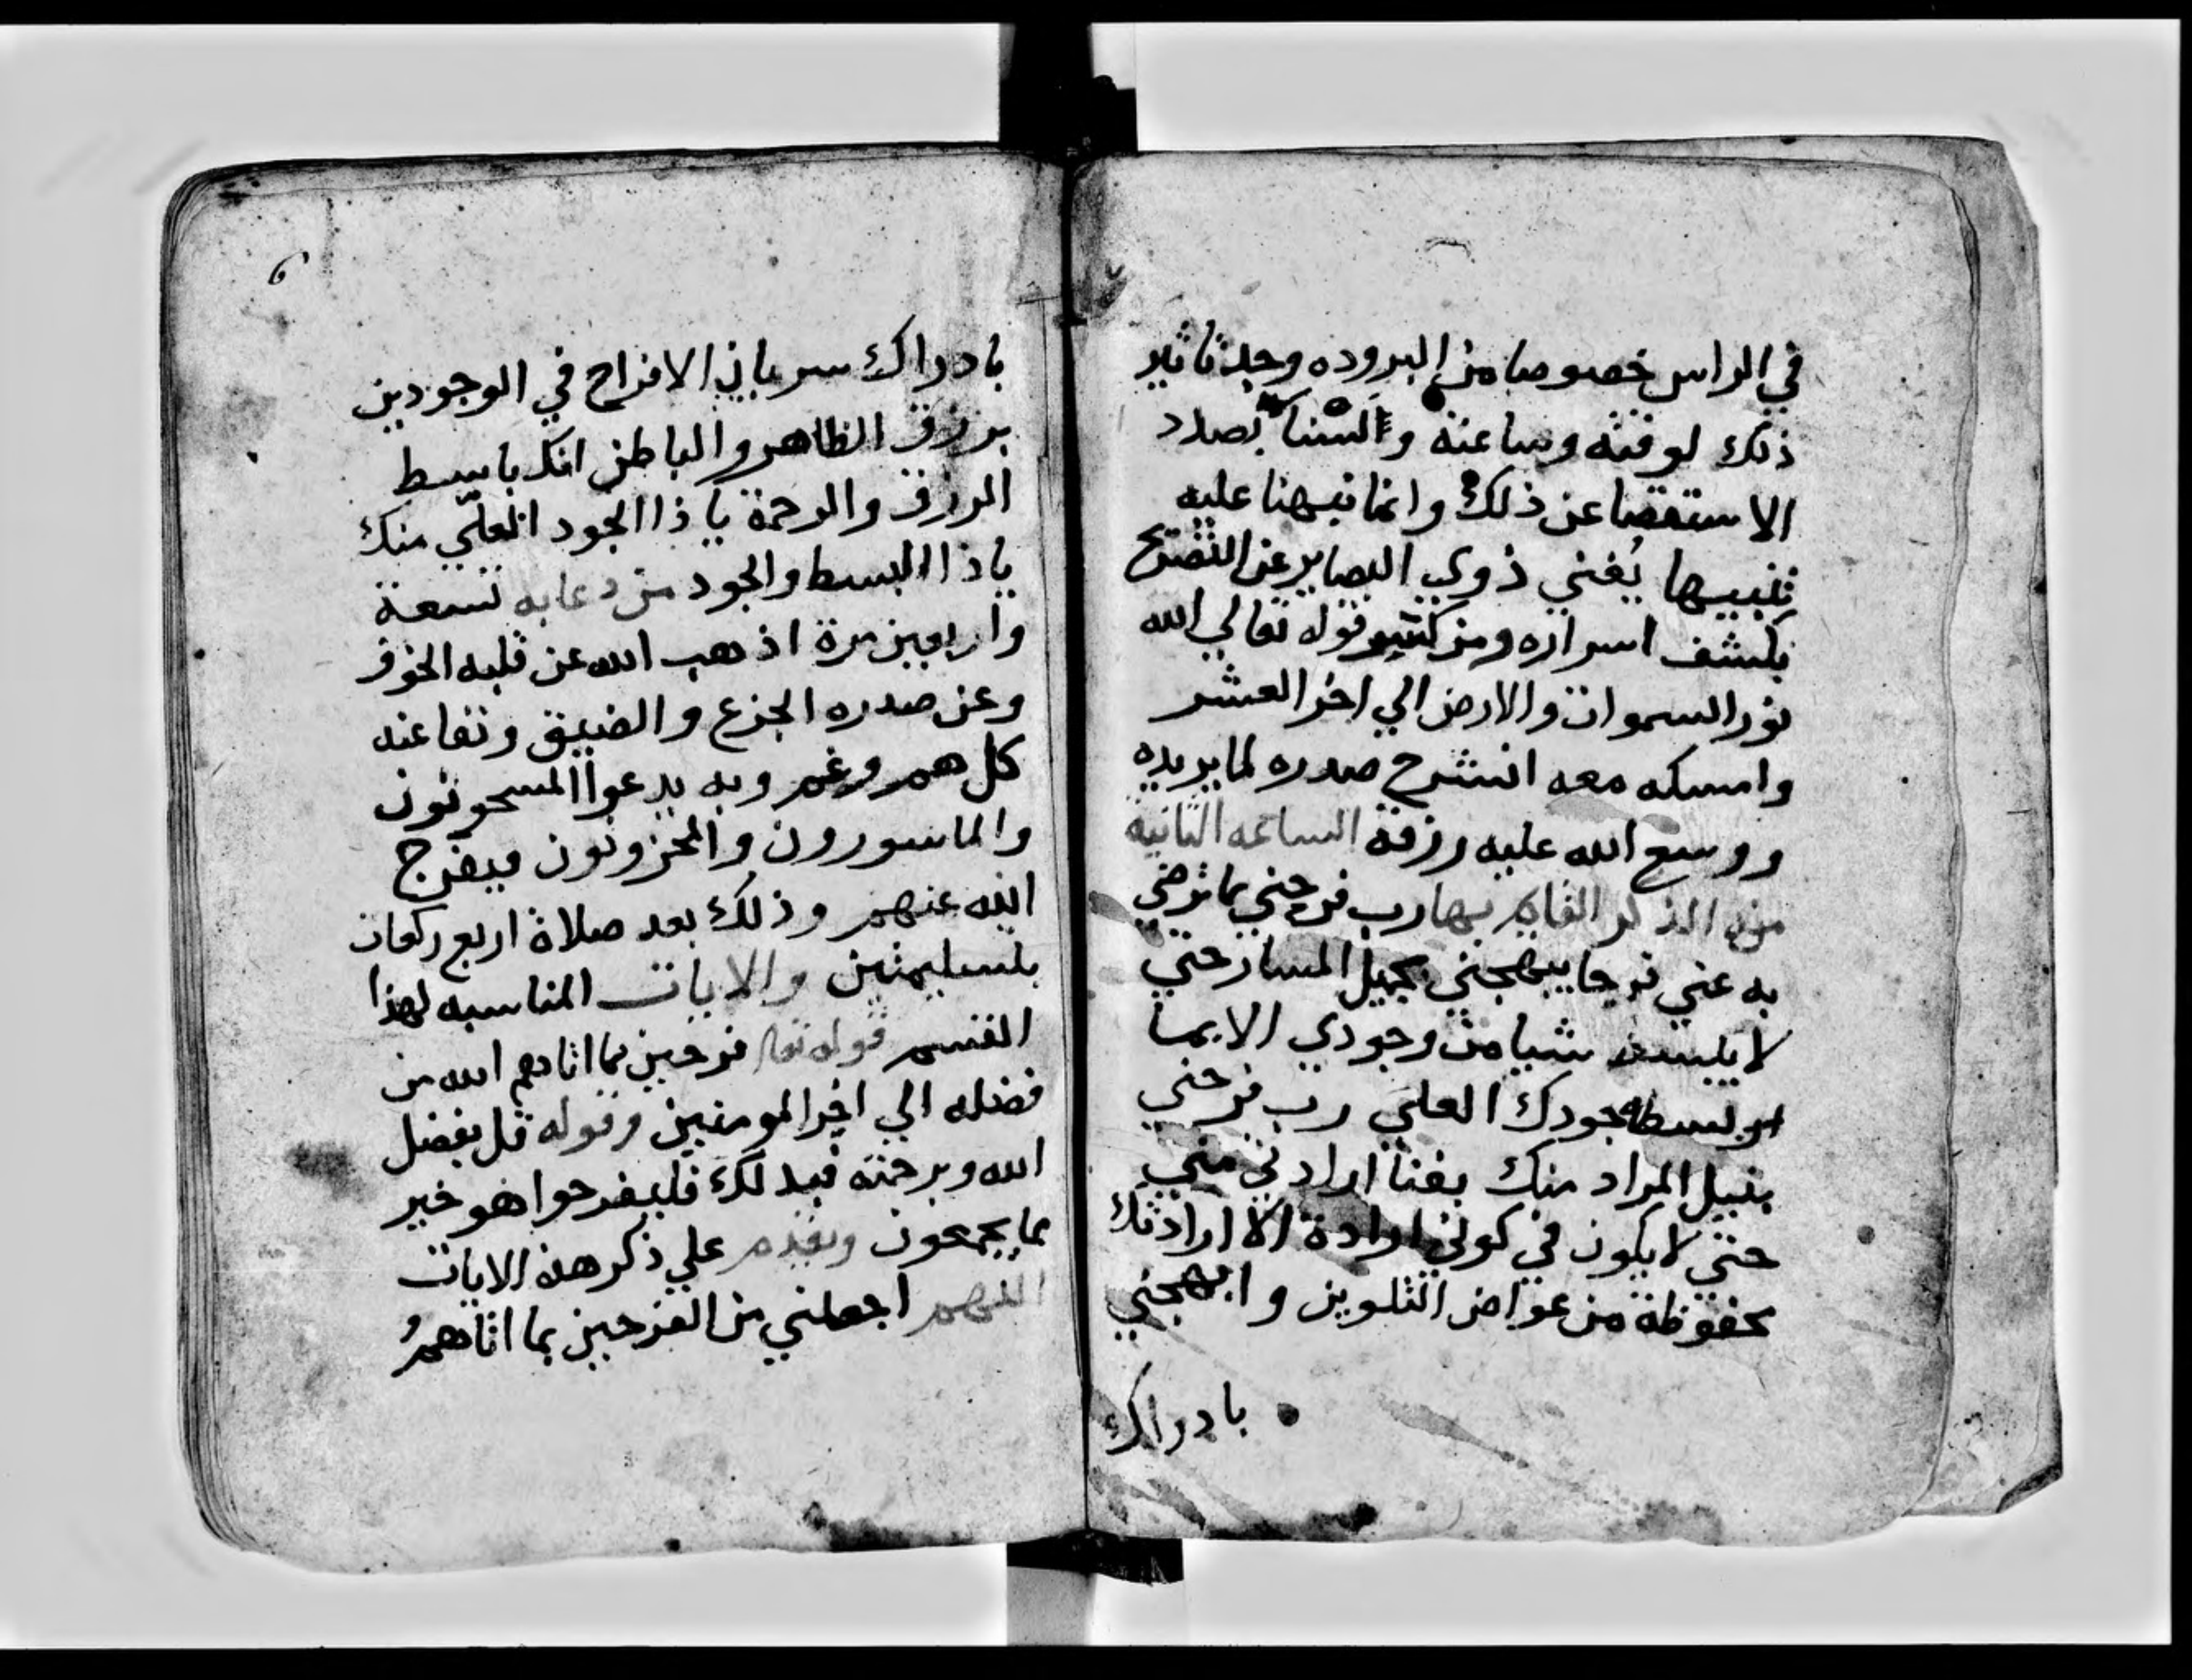 في الراس خصوصا من البروده وجد تاثير
ذلك لوقته وساعته والسنا بصدد
الاستقصا عن ذلك وانما نبهنا عليه
تنبيها يغني ذوي البصاير عن التصريح
بكشف اسراره ومن كتب قوله تعالي الله
نور السموات والارض الي اخر العشر
وامسكه معه انشرح صدره لما يريده
ووسع الله عليه رزقه الساعه الثانية
من الذكر القايم بها رب فرحني بما ترضي
به عني فرحا يبهجني بجميل المسار حتي
لا يبسط شيا من وجودي الا بما
بسطه جودك العلي رب فرحني
بنيل المراد منك بفنا ارادتي مني
حتي لا يكون في كوني ارادة الا ارادتك
محفوظة من عوارض التلوين وابهجني
بادراك
٦
بادراك سريان الافراح في الوجودين
برزق الظاهر والباطن انك باسط
الرزق والرحمة يا ذا الجود العلي منك
ياذا البسط والجود من دعا به تسعة
واربعين مرة اذهب الله عن قلبه الخوف
وعن صدره الجزع والضيق ونفا عنه
كل هم وغم وبه يدعوا المسجونون
والماسورون والمحزونون فيفرج
الله عنهم وذلك بعد صلاة اربع ركعات
بتسليمتين والايات المناسبه لهذا
القسم قوله تعا فرحين بما اتاهم الله من
فضله الي اخر المومنين وقوله قل بفضل
الله وبرحمته فبذلك فليفرحوا هو خير
مما يجمعون ويقدم علي ذكر هذه الايات
اللهم اجعلني من الفرحين بما اتاهم